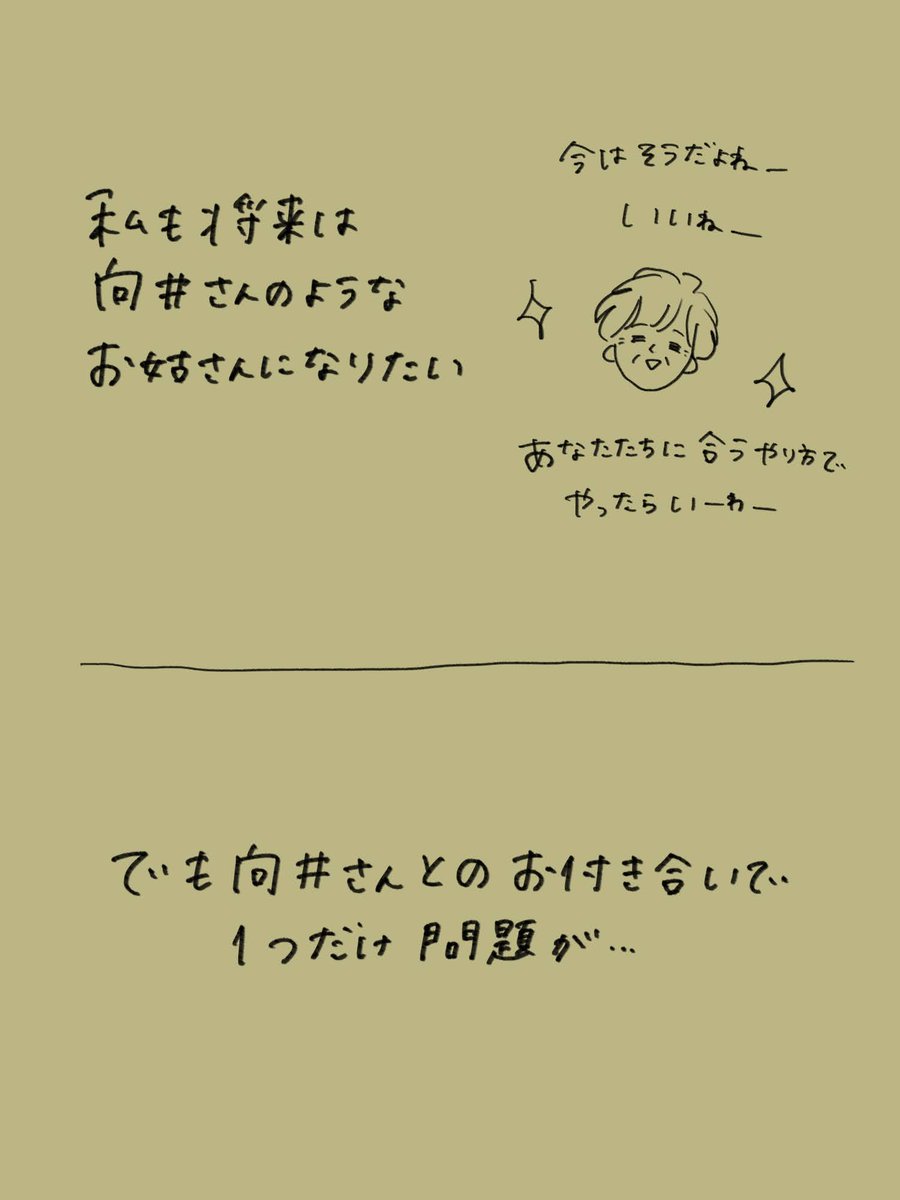 私も将来は
向井さんのような
お姑さんになりたい
今はそうだよねー
いいねー
あなたたちに合うやり方で
やったらいーわー
でも向井さんとのお付き合いで
1つだけ問題が…